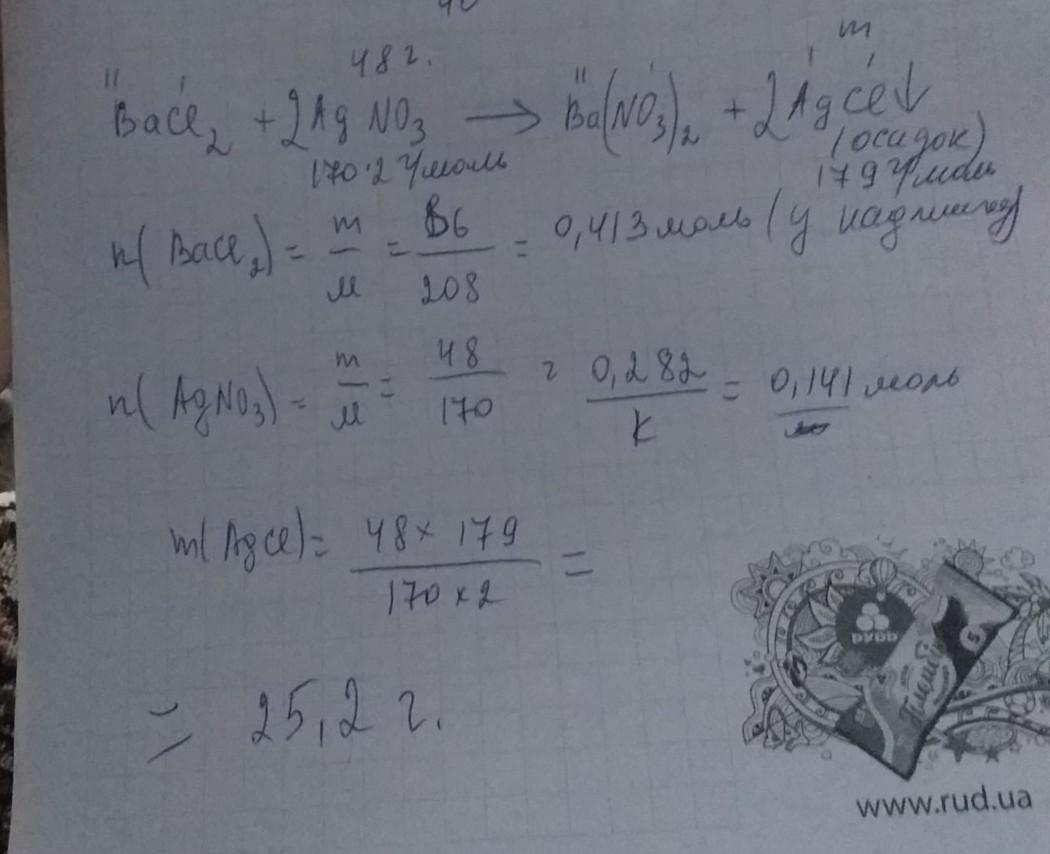 48 г.
m
II I II I I I
BaCl₂ + 2AgNO₃ → Ba(NO₃)₂ + 2AgCl↓
(осадок)
170·2 г/моль 179 г/моль
n(BaCl₂) = m/M = 86/208 = 0,413 моль (у надлишку)
n(AgNO₃) = m/M = 48/170 = 0,282/k = 0,141 моль
m(AgCl) = 48×179/170×2 =
= 25,2 г.
РУДЬ
Пломбір
www.rud.ua